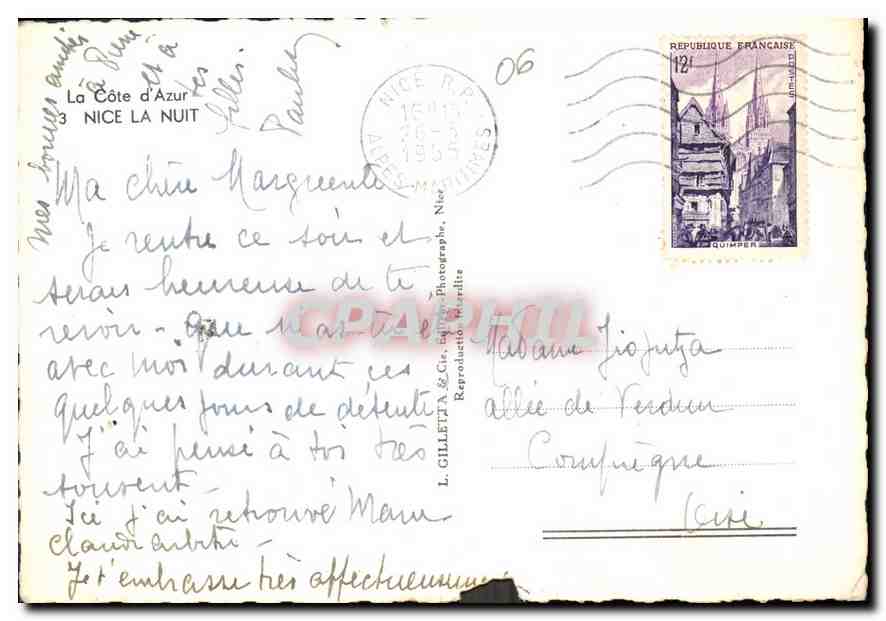 mes bonnes amitiés
à
et à
tes
filles
Paulet
La Côte d'Azur
3 NICE LA NUIT
06
NICE R.P.
ALPES-MARITIMES
REPUBLIQUE FRANÇAISE
12f
POSTES
QUIMPER
Ma chère Marguerite
Je rentre ce soir et
serais heureuse de te
revoir - Que n'as tu été
avec moi durant ces
quelques jours de détente
J'ai pensé à toi très
souvent -
Ici j'ai retrouvé
Je t'embrasse très affectueusement
L. GILLETTA & Cie, Éditeur-Photographe, Nice
Reproduction interdite
CPAPHIL
Madame
allée de Verdun
Compiègne
Oise